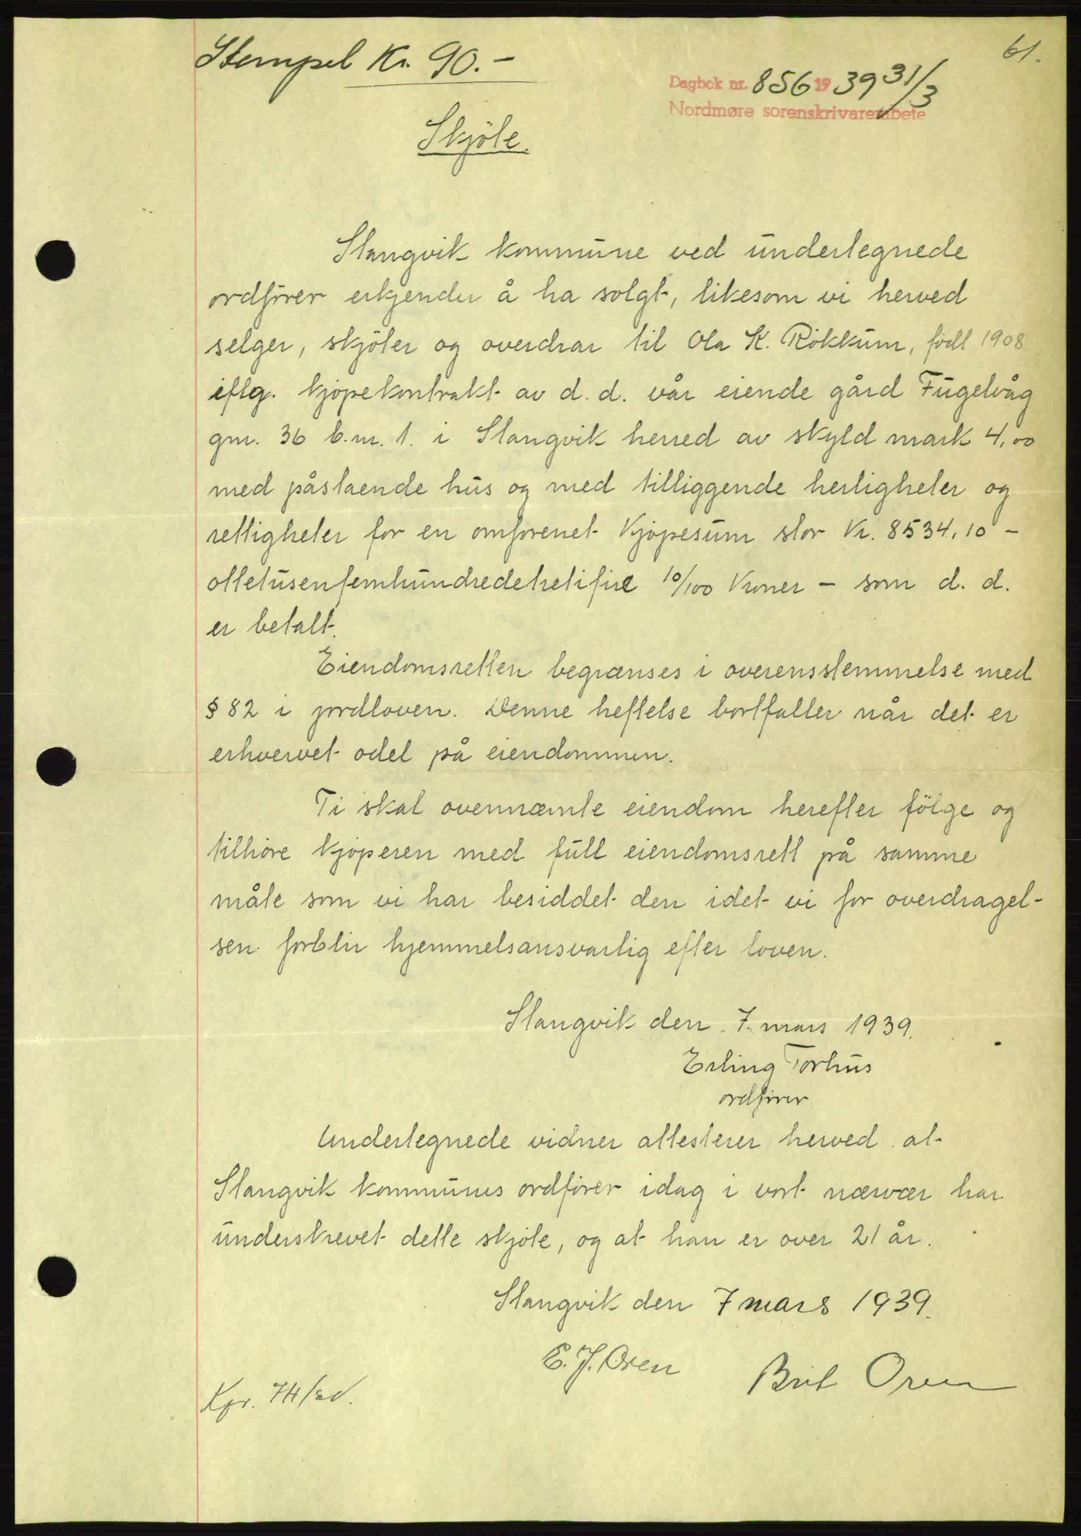 61.
Stempel Kr. 90.-
Dagbok nr. 856 1939 31/3
Nordmøre sorenskrivarembete
Skjöte.
Stangvik kommune ved undertegnede
ordfører erkjender å ha solgt, likesom vi herved
selger, skjöter og overdrar til Ola K. Rökkum, født 1908
iflg. kjøpekontrakt av d. d. vår eiende gård Fugelvåg
gnr. 36 b.nr. 1. i Stangvik herred av skyld mark 4,00
med påstaende hus og med tilliggende herligheter og
rettigheter for en omforenet kjøpesum stor Kr. 8534,10 -
ottetusenfemhundredetretifire 10/100 kroner - som d. d.
er betalt.
Eiendomsretten begrænses i overensstemmelse med
§ 82 i jordloven. Denne heftelse bortfaller når det er
erhvervet odel på eiendommen.
Ti skal ovennæmte eiendom herefter fölge og
tilhöre kjøperen med full eiendomsrett på samme
måte som vi har besiddet den idet vi for overdragel-
sen forblir hjemmelsansvarlig efter loven.
Stangvik den 7. mars 1939.
Erling Torhus
ordfører
Undertegnede vidner attesterer herved at
Stangvik kommunes ordfører idag i vort nærvær har
underskrevet dette skjöte, og at han er over 21 år.
Stangvik den 7 mars 1939.
E. J. Øren
Brit Øren
Kfr. 74/